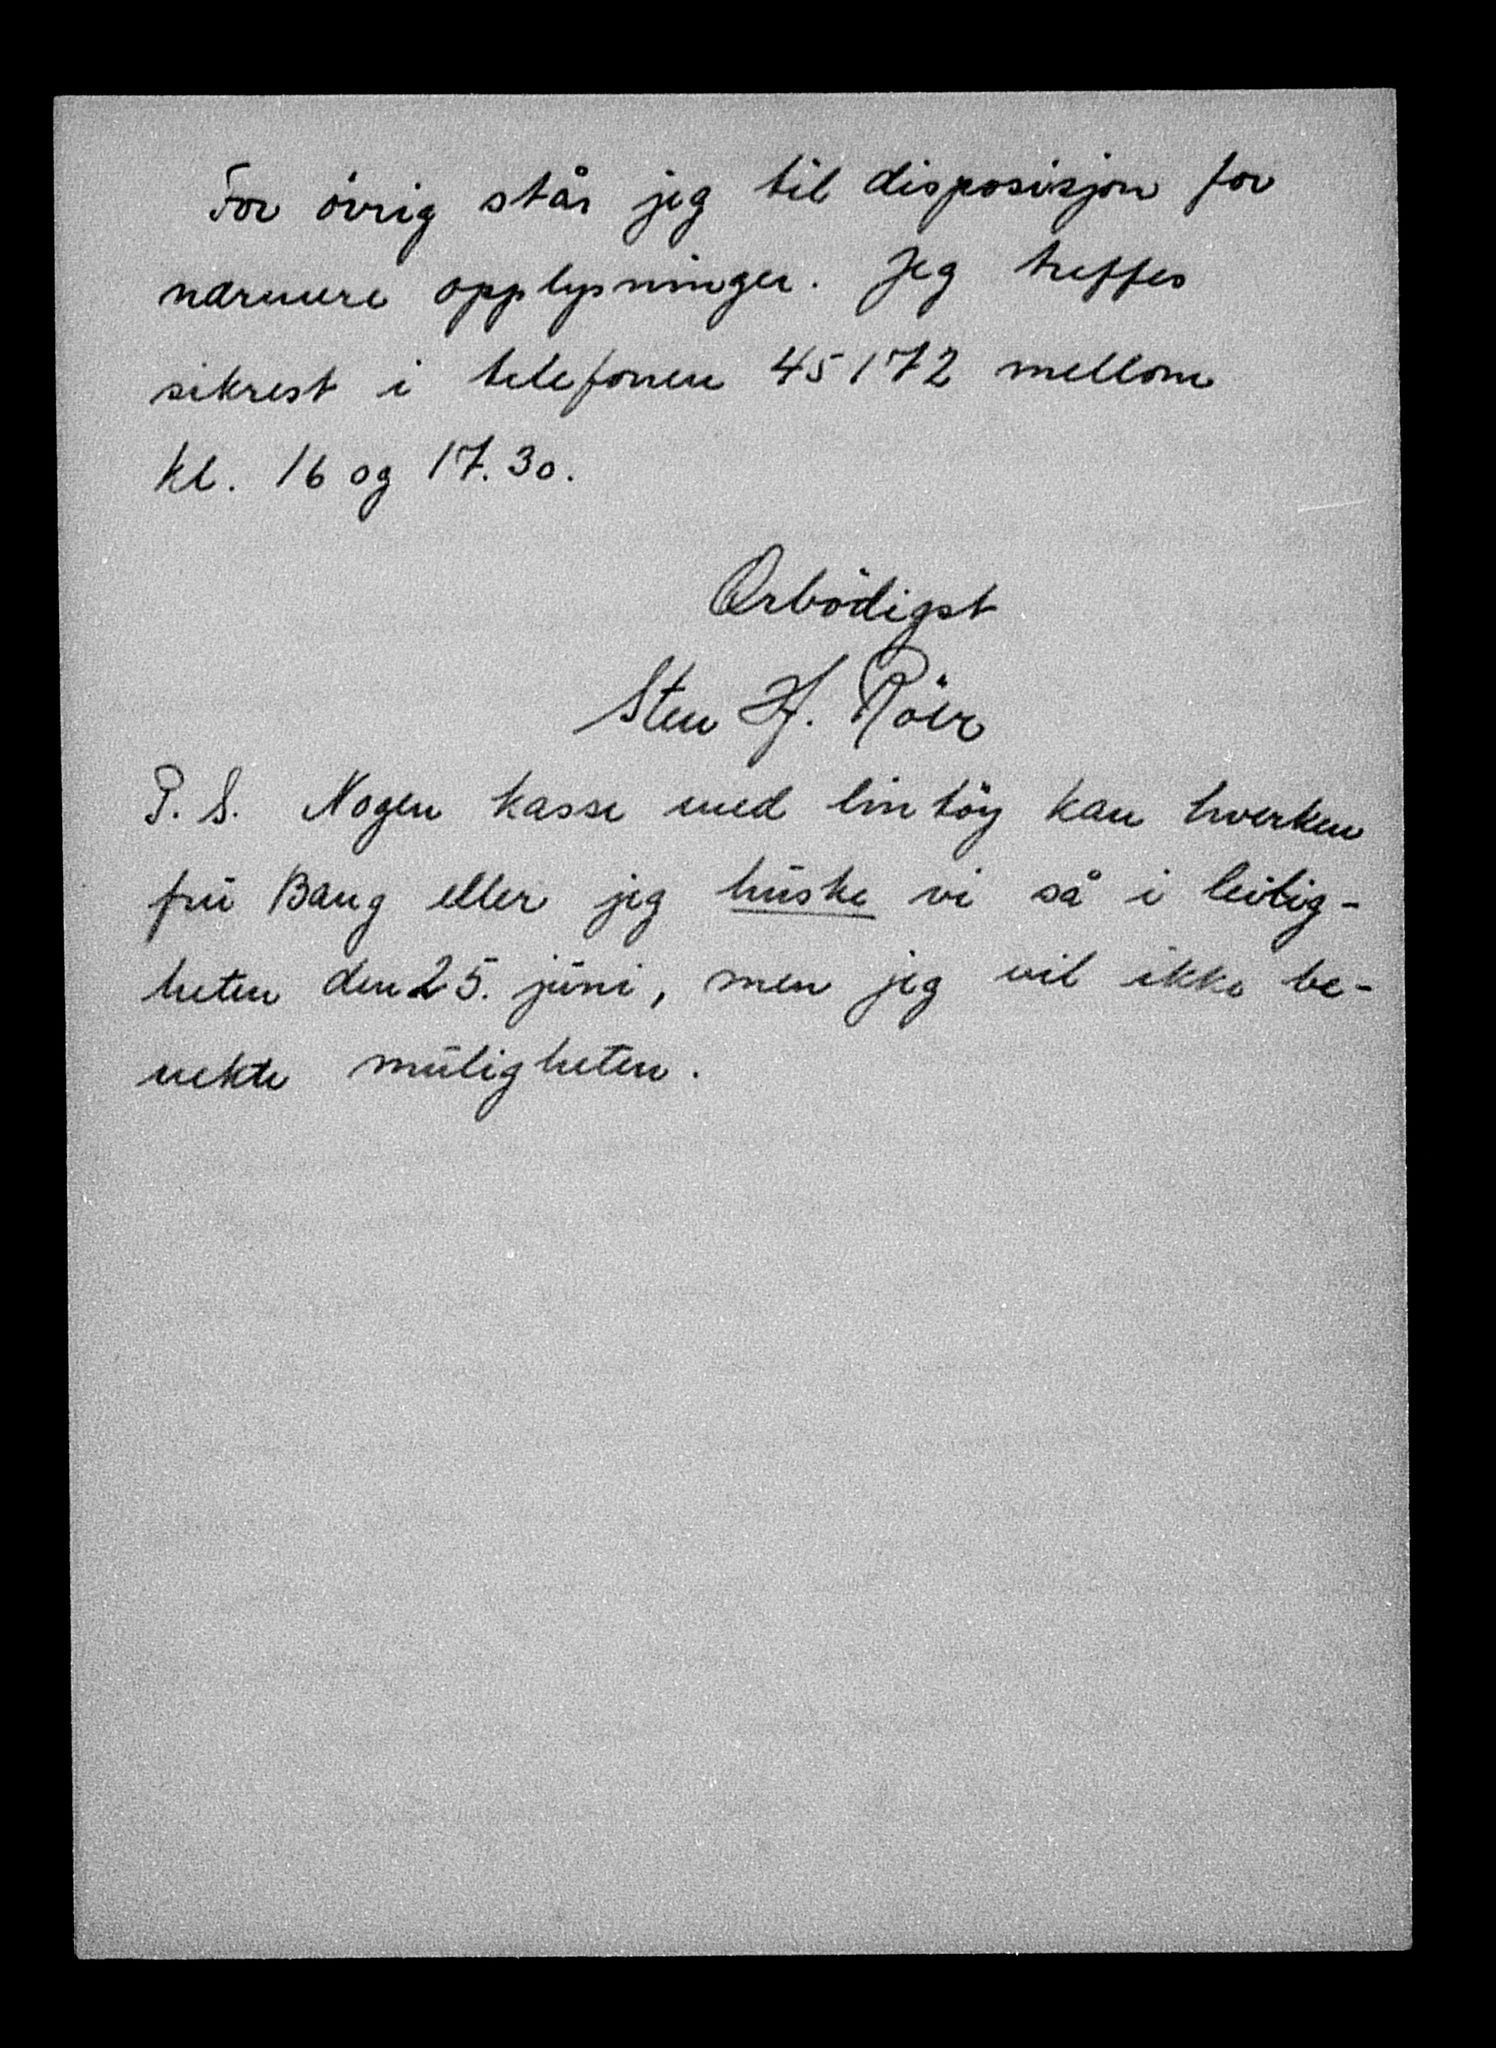 For övrig står jeg til disposisjon for
nærmere opplysninger. Jeg treffes
sikrest i telefonen 45172 mellom
kl. 16 og 17.30.
Ærbödigst
Sten H. Röer
P.S. Nogen kasse med lintöy kan hverken
frü Bang eller jeg hüske vi så i leilig-
heten den 25. jüni, men jeg vil ikke be-
nekte müligheten.